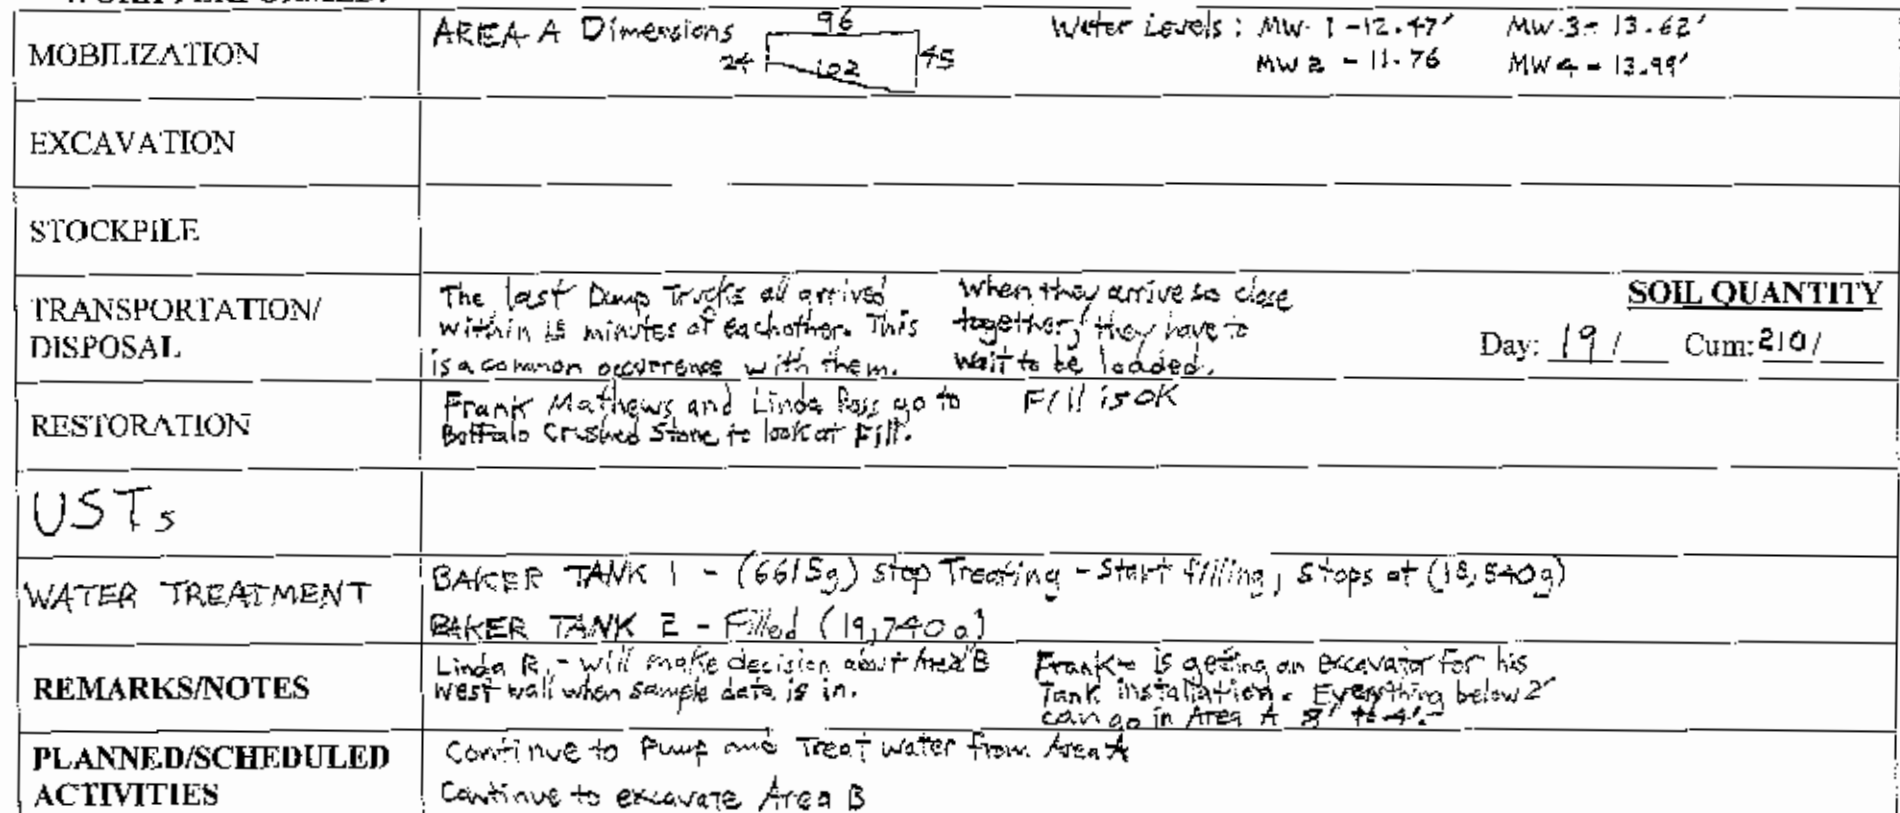 MOBILIZATION
AREA A Dimensions 96 24 102 45
Water Levels: MW-1-12.47' MW-3-13.62'
MW 2 - 11.76 MW 4 - 13.99'
EXCAVATION
STOCKPILE
TRANSPORTATION/
DISPOSAL
The last Dump Trucks all arrived
within 15 minutes of eachother. This
is a common occurrence with them.
When they arrive so close
together, they have to
wait to be loaded.
SOIL QUANTITY
Day: 19 / Cum: 210 /
RESTORATION
Frank Mathews and Linda Ross go to
Buffalo Crushed Stone to look at Fill.
Fill is OK
USTs
WATER TREATMENT
BAKER TANK 1 - (6615g) stop Treating - Start filling, Stops at (18,540g)
BAKER TANK 2 - Filled (19,740g)
REMARKS/NOTES
Linda R. - will make decision about Area B
West wall when sample data is in.
Frank - is getting an excavator for his
Tank installation. Everything below 2'
can go in Area A 8' to 4'.
PLANNED/SCHEDULED
ACTIVITIES
Continue to Pump and Treat water from Area A
Continue to excavate Area B